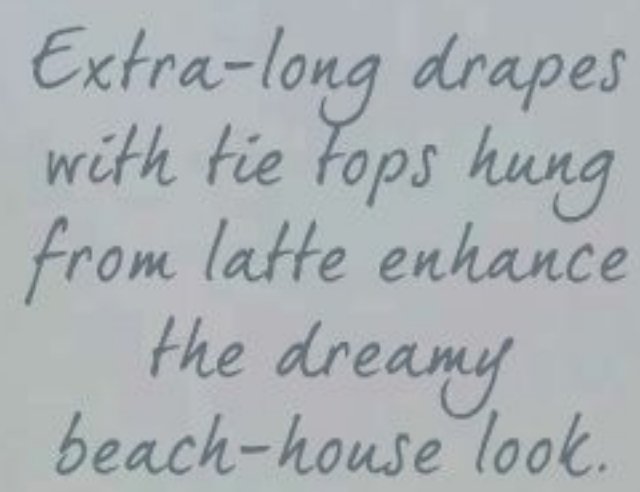 Extra-long drapes
with tie tops hung
from latte enhance
the dreamy
beach-house look.